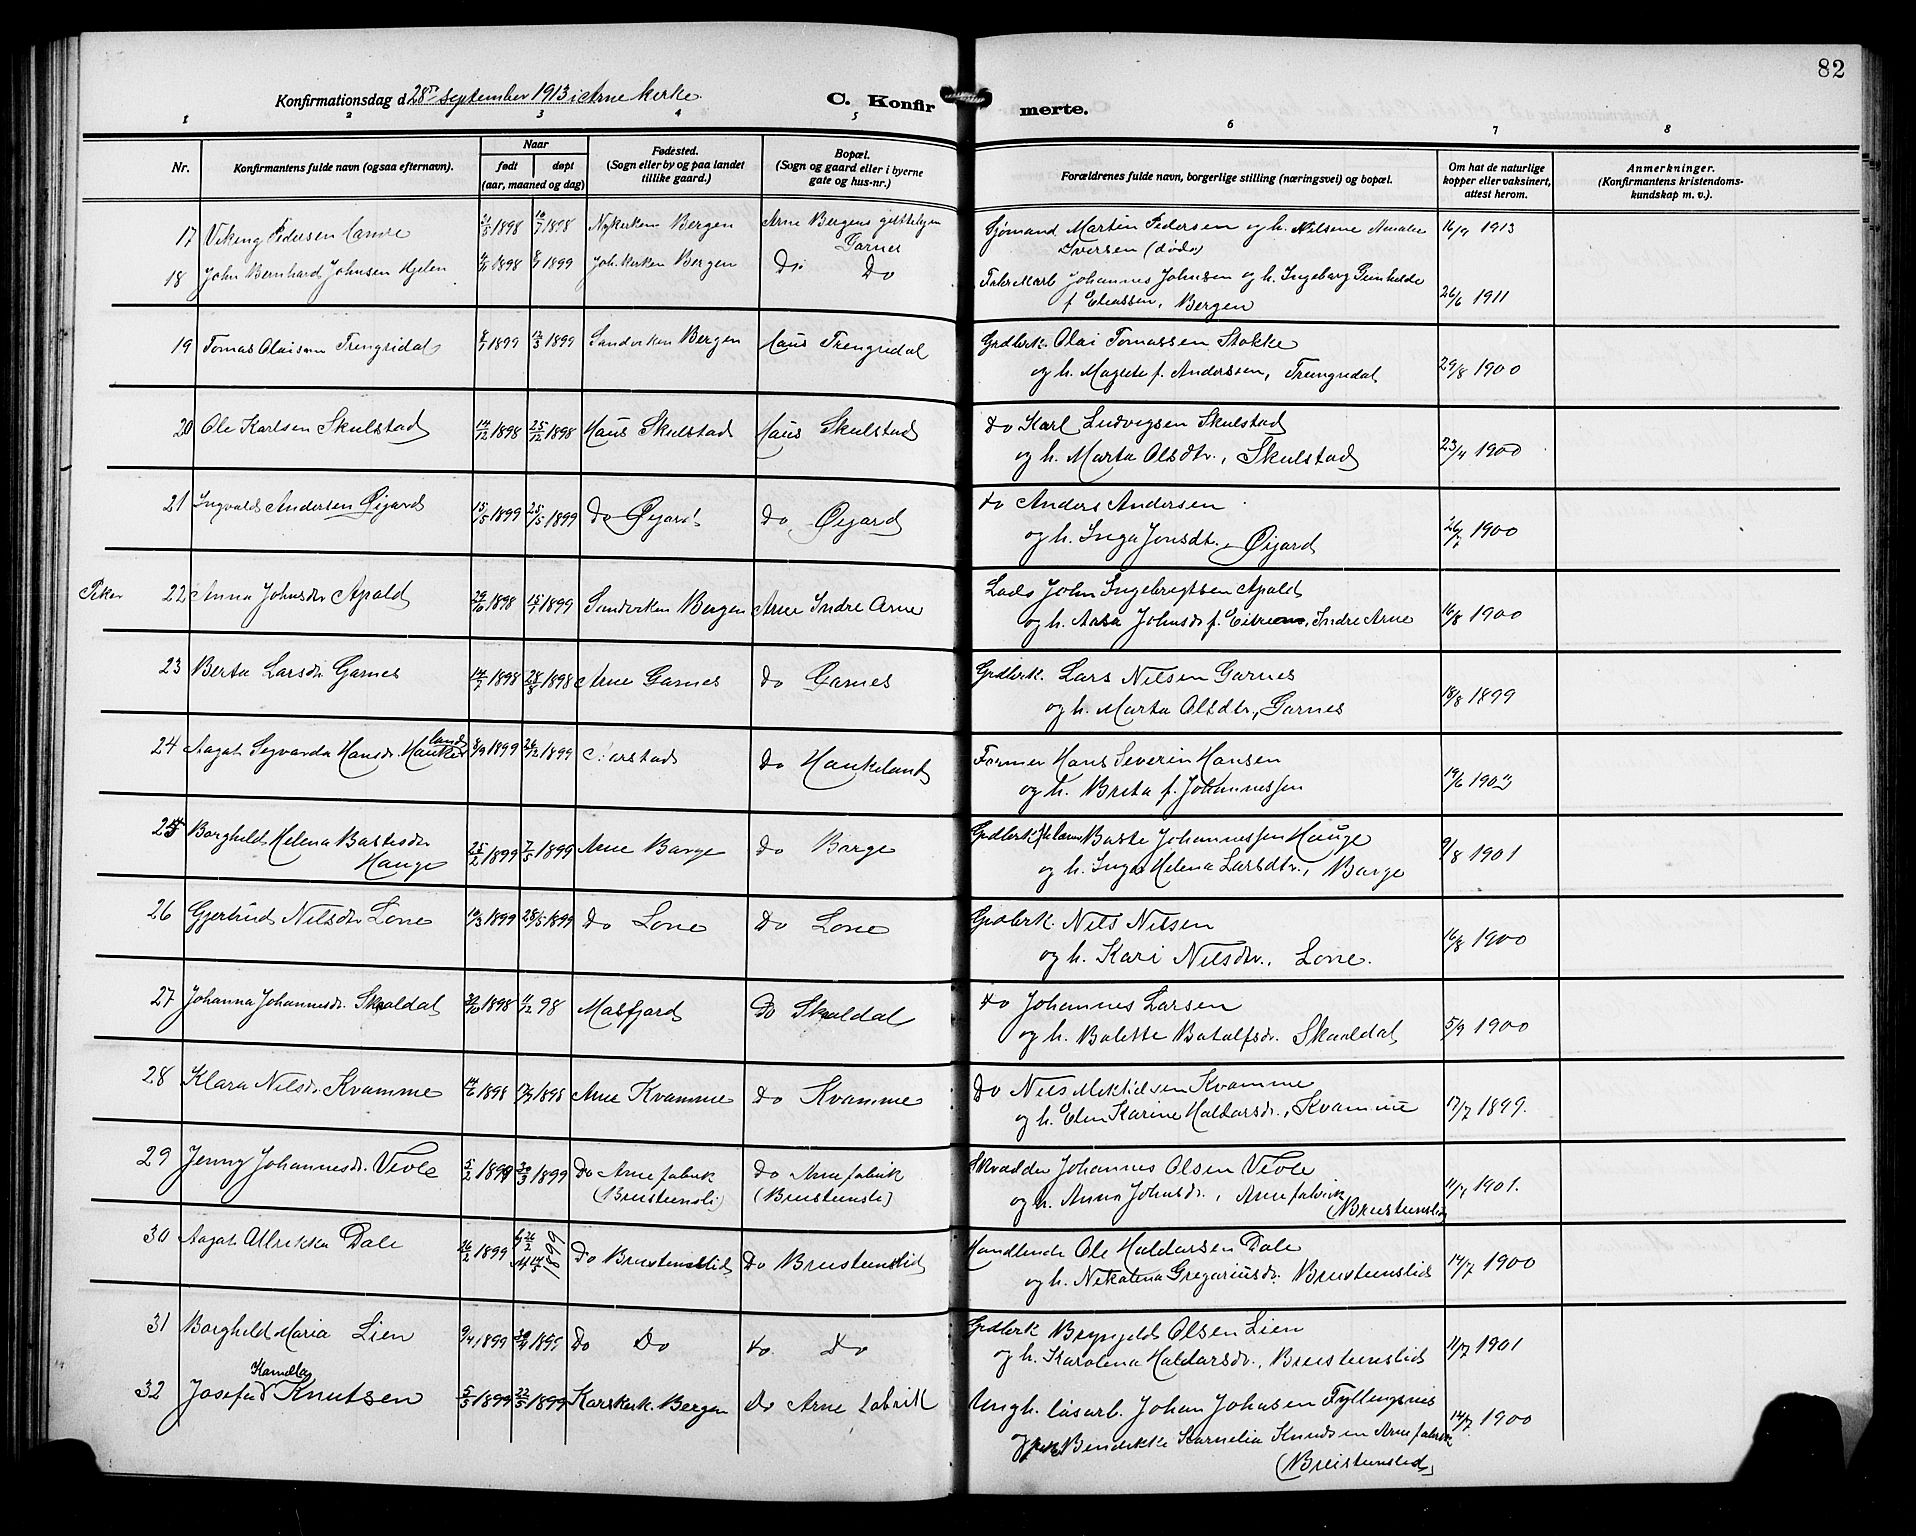 82
Konfirmationsdag d 28de september 1913 i Arne kirke
C. Konfirmerte.
1 2 3 4 5 6 7 8
Nr.
Konfirmantens fulde navn (ogsaa efternavn).
Naar
født døpt
(aar, maaned og dag)
Fødested.
(Sogn eller by og paa landet
tillike gaard.)
Bopæl.
(Sogn og gaard eller i byerne
gate og hus-nr.)
Forældrenes fulde navn, borgerlige stilling (næringsvei) og bopæl.
Om hat de naturlige
kopper eller vaksinert,
attest herom.
Anmerkninger.
(Konfirmantens kristendoms-
kundskap m. v.).
17 Viking Pedersen 1898 1898 Nykirken Bergen Arne Bergens guttehjem Garnes Sjømand Martin Pedersen og h. Nilsine Amalie 16/9 1913
Iversen (døde)
18 John Bernhard Johnsen Hjelen 1898 1899 Joh. kirken Bergen Do Do Johannes Johnsen og h. Ingeborg
f. Eliassen, Bergen 26/6 1911
19 Tomas Olaisen Trengridal 1899 12/3 1899 Sandviken Bergen Haus Trengridal Grdbrk. Olai Tomassen Stokke
og h. Magrete f. Anderssen, Trengridal 29/8 1900
20 Ole Karlsen Skulstad 14/12 1898 25/12 1898 Haus Skulstad Haus Skulstad do Karl Ludvigsen Skulstad
og h. Marta Olsdtr., Skulstad 23/4 1900
21 Ingvald Andersen Øigard 15/5 1899 25/5 1899 do Øigard do Øigard do Anders Andersen
og h. Inga Jonsdtr. Øijard 1900
Piker 22 Anna Johnsdr Apold 1898 15/1 1899 Sandviken Bergen Arne Indre Arne Lods John Ingebrigtsen Apold
og h. Aasa Johnsdr f. Indre Arne 16/8 1900
23 Berta Larsdr Garnes 14/7 1898 28/8 1898 Arne Garnes do Garnes Grdbrk. Lars Nilsen Garnes
og h. Marta Olsdtr., Garnes 18/8 1899
24 Aagot Sigvarda Hansdr. Haukeland 1899 1899 do Haukeland Former Hans Severin Hansen
og h. Brita f. Johannessen 19/6
25 Borghild Helena Bastesdr Hauge 25/2 1899 7/5 1899 Arne Borge do Borge Grdbrk. Baste Johannessen Hauge
og h. Inga Helena Larsdtr., Borge 9/8 1901
26 Gjertrud Nilsdr Lone 19/3 1899 28/5 1899 do Lone do Lone Grdbrk. Nils Nilsen
og h. Kari Nilsdtr., Lone. 16/8 1900
27 Johanna Johannesdr. Skaaldal 1898 98 Masfjord do Skaaldal do Johannes Larsen
og h. Bolette Botolfsdr. Skaaldal 5/9 1900
28 Klara Nilsdr Kvamme 14/6 1898 1898 Arne Kvamme do Kvamme Do Nils Kvamme
og h. Elen Karine Haldorsdr., Kvamme 17/7 1899.
29 Jenny Johannesdr. Vevle 5/2 1899 30/3 1899 Do Arne fabrik
(Breistensli) Do Arne fabrik
(Breistensli) Skrædder Johannes Olsen Vevle
og h. Anna Johnsdr., Arne fabrik 1901.
(Breistenslid
30 Aagot Allrikka Dale 16/2 1899 1899 Do Breistenslid Do Breistenslid Handlende Ole Haldorsen Dale
og h. Nikolina Gregoriusdr. Breistenslid 14/7 1900
31 Borghild Maria Lien 9/4 1899 Do Do do. Do Grdbrk Brynjeld Olsen Lien
og h. Karolena Haldorsdr., Breistenslid 11/7 1901
32 Josefa Knutsen 5/5 1899 22/5 1899 Korskirk. Bergen Do Arne fabrik Ungk. løsarb. Johan Johnsen Fyllingsnes
og pike Bendikke Kornelia Knudsen Arne fabrik 14/7 1900
(Breistenslid)